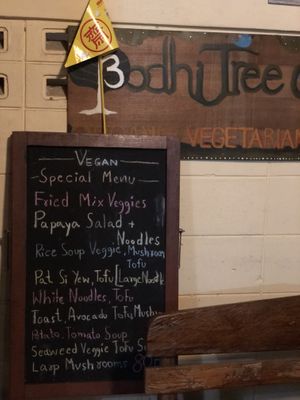 齋
3
Bodhi Tree
VEGETARIAN
VEGAN
Special Menu
Fried Mix Veggies
Papaya Salad +
Noodles
Rice Soup Veggie, Mushroom
Tofu
Pat Si Yew, Tofu (Large Noodle
White Noodles, Tofu
Toast, Avocado Tofu, Mushr
Potato. Tomato Soup
Seaweed Veggie Tofu S
Laap Mushrooms 80